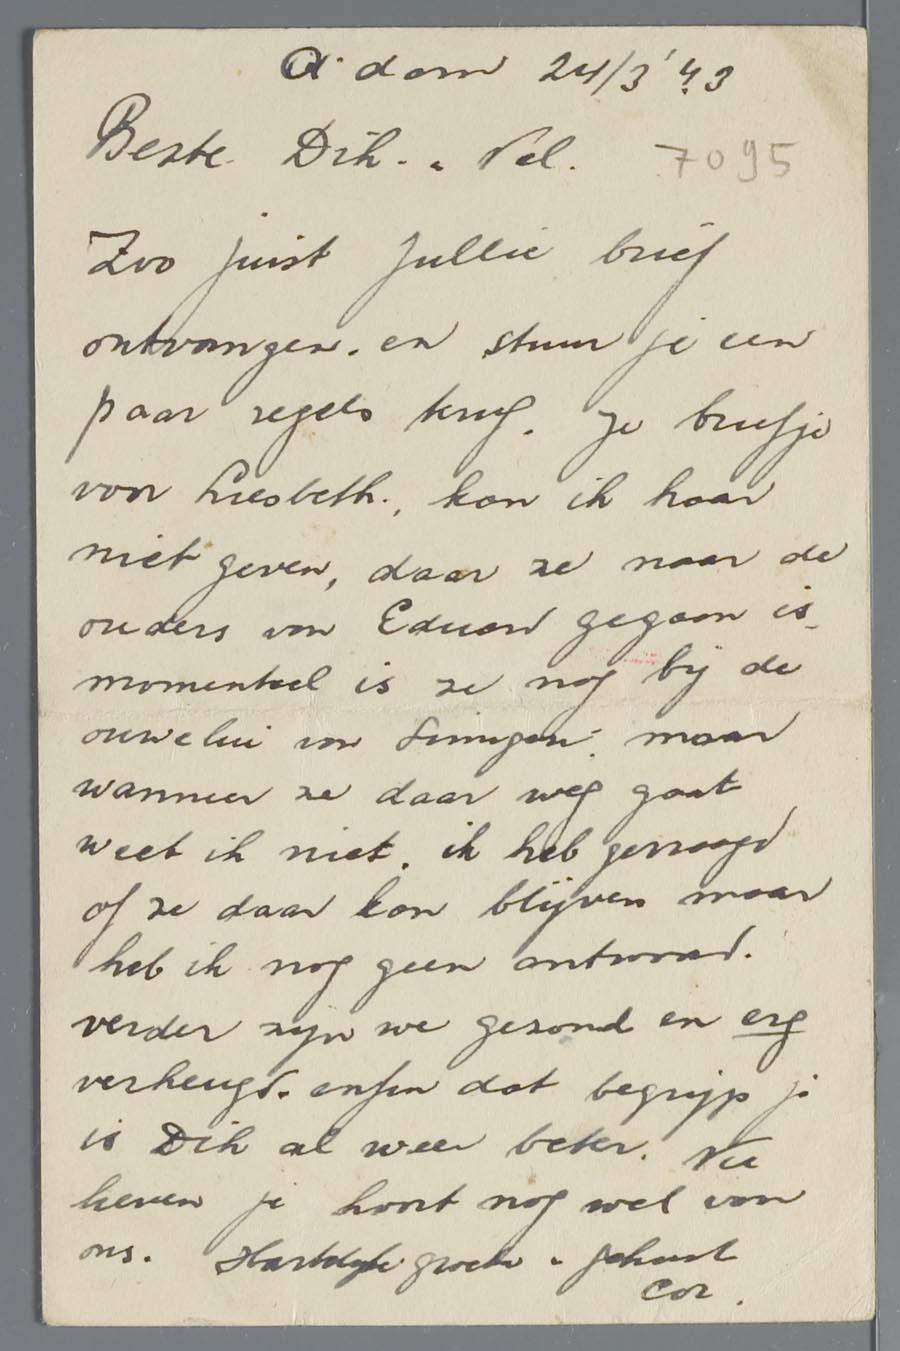 A. dam 24/3 '43
Beste Dik. " Nel. 7095
Zoo juist jullie brief
ontvangen. en stuur je een
paar regels terug. Je briefje
voor Liesbeth., kan ik haar
niet geven, daar ze naar de
ouders van Eduard gegaan is
momenteel is ze nog bij de
ouwelui van maar
wanneer ze daar weg gaat
weet ik niet. ik heb gevraagd
of ze daar kan blijven maar
heb ik nog geen antwoord.
verder zijn we gezond en erg
verheugd. enfin dat begrijp je
is Dik al weer beter. Nu
lieven je hoort nog wel van
ons. Hartelijke groeten " gekust
Cor.